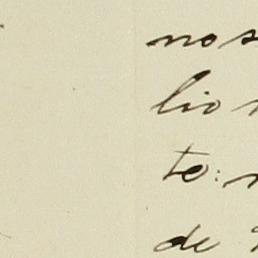 nos
lio
te:
de